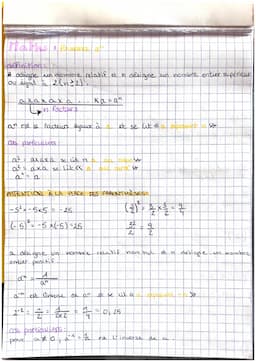 Maths : Puissance aⁿ
définition :
a désigne un nombre relatif et n désigne un nombre entier supérieur
ou égal à 2 (n ≥ 2).
a x a x a x a ... x a = aⁿ
n facteurs
aⁿ est n facteurs égaux à a et se lit « a exposant n »
cas particuliers :
a³ = a x a x a se lit « a au cube »
a² = a x a se lit « a au carré »
a¹ = a
ATTENTION À LA PLACE DES PARENTHÈSES
-5² = -5 x 5 = -25
(-5)² = -5 x (-5) = 25
a désigne un nombre relatif non nul et n désigne un nombre
entier positif
a⁻ⁿ est l'inverse de aⁿ et se lit « a exposant -n »
= 0,25
cas particuliers :
pour a ≠ 0, a⁻¹ = est l'inverse de a.